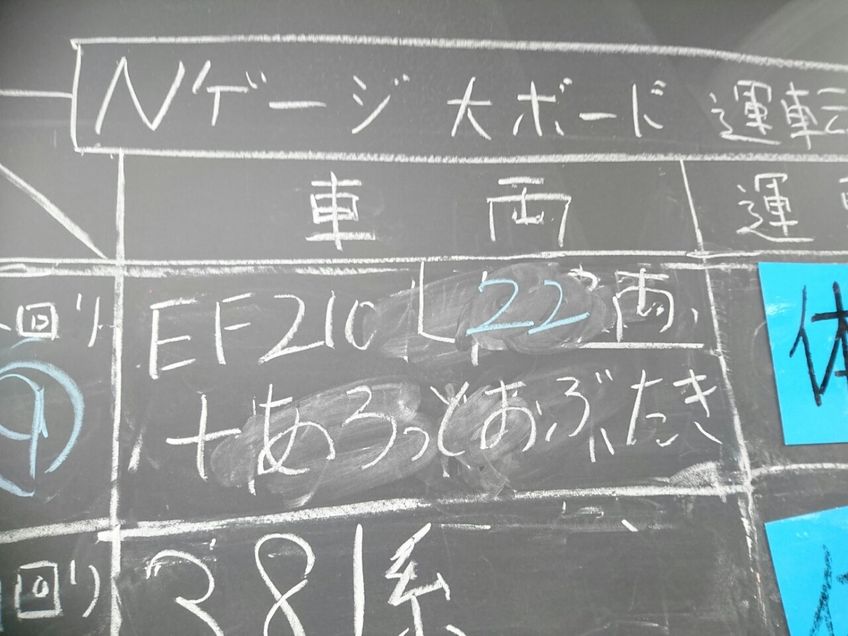 Nゲージ 大ボード 運転
車両
運
回り
EF210 22両
9
+あろっどおぶたき
体
回り
381系